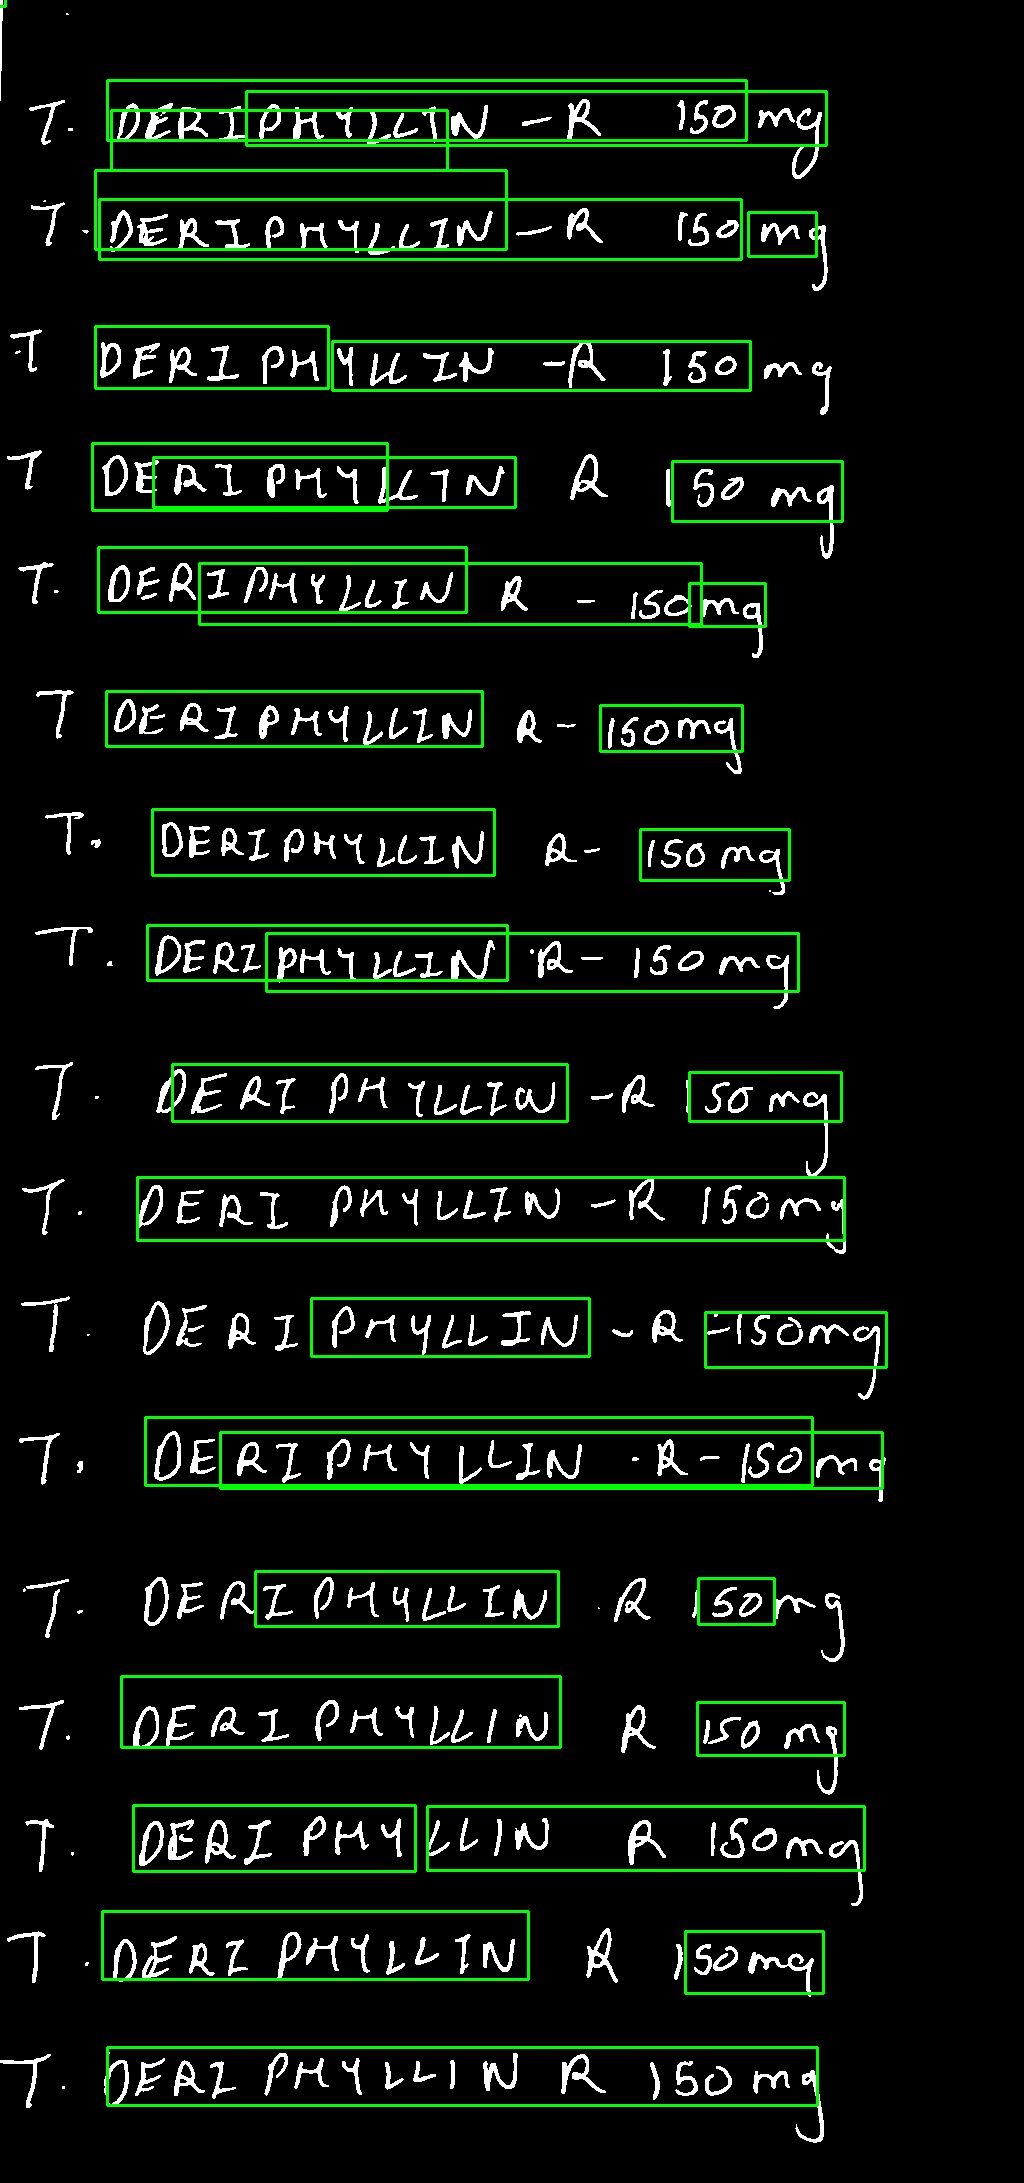 T. DERIPHYLLIN - R 150 mg
T. DERIPHYLLIN - R 150 mg
T DERIPHYLLIN - R 150 mg
T DERIPHYLLIN R 150 mg
T. DERIPHYLLIN R - 150mg
T DERIPHYLLIN R - 150mg
T. DERIPHYLLIN R - 150mg
T. DERIPHYLLIN R - 150mg
T. DERIPHYLLIN - R 150mg
T. DERIPHYLLIN - R 150mg
T. DERIPHYLLIN - R - 150mg
T. DERIPHYLLIN . R - 150mg
T. DERIPHYLLIN . R 150mg
T. DERIPHYLLIN R 150 mg
T. DERIPHYLLIN R 150mg
T. DERIPHYLLIN R 150mg
T. DERIPHYLLIN R 150 mg